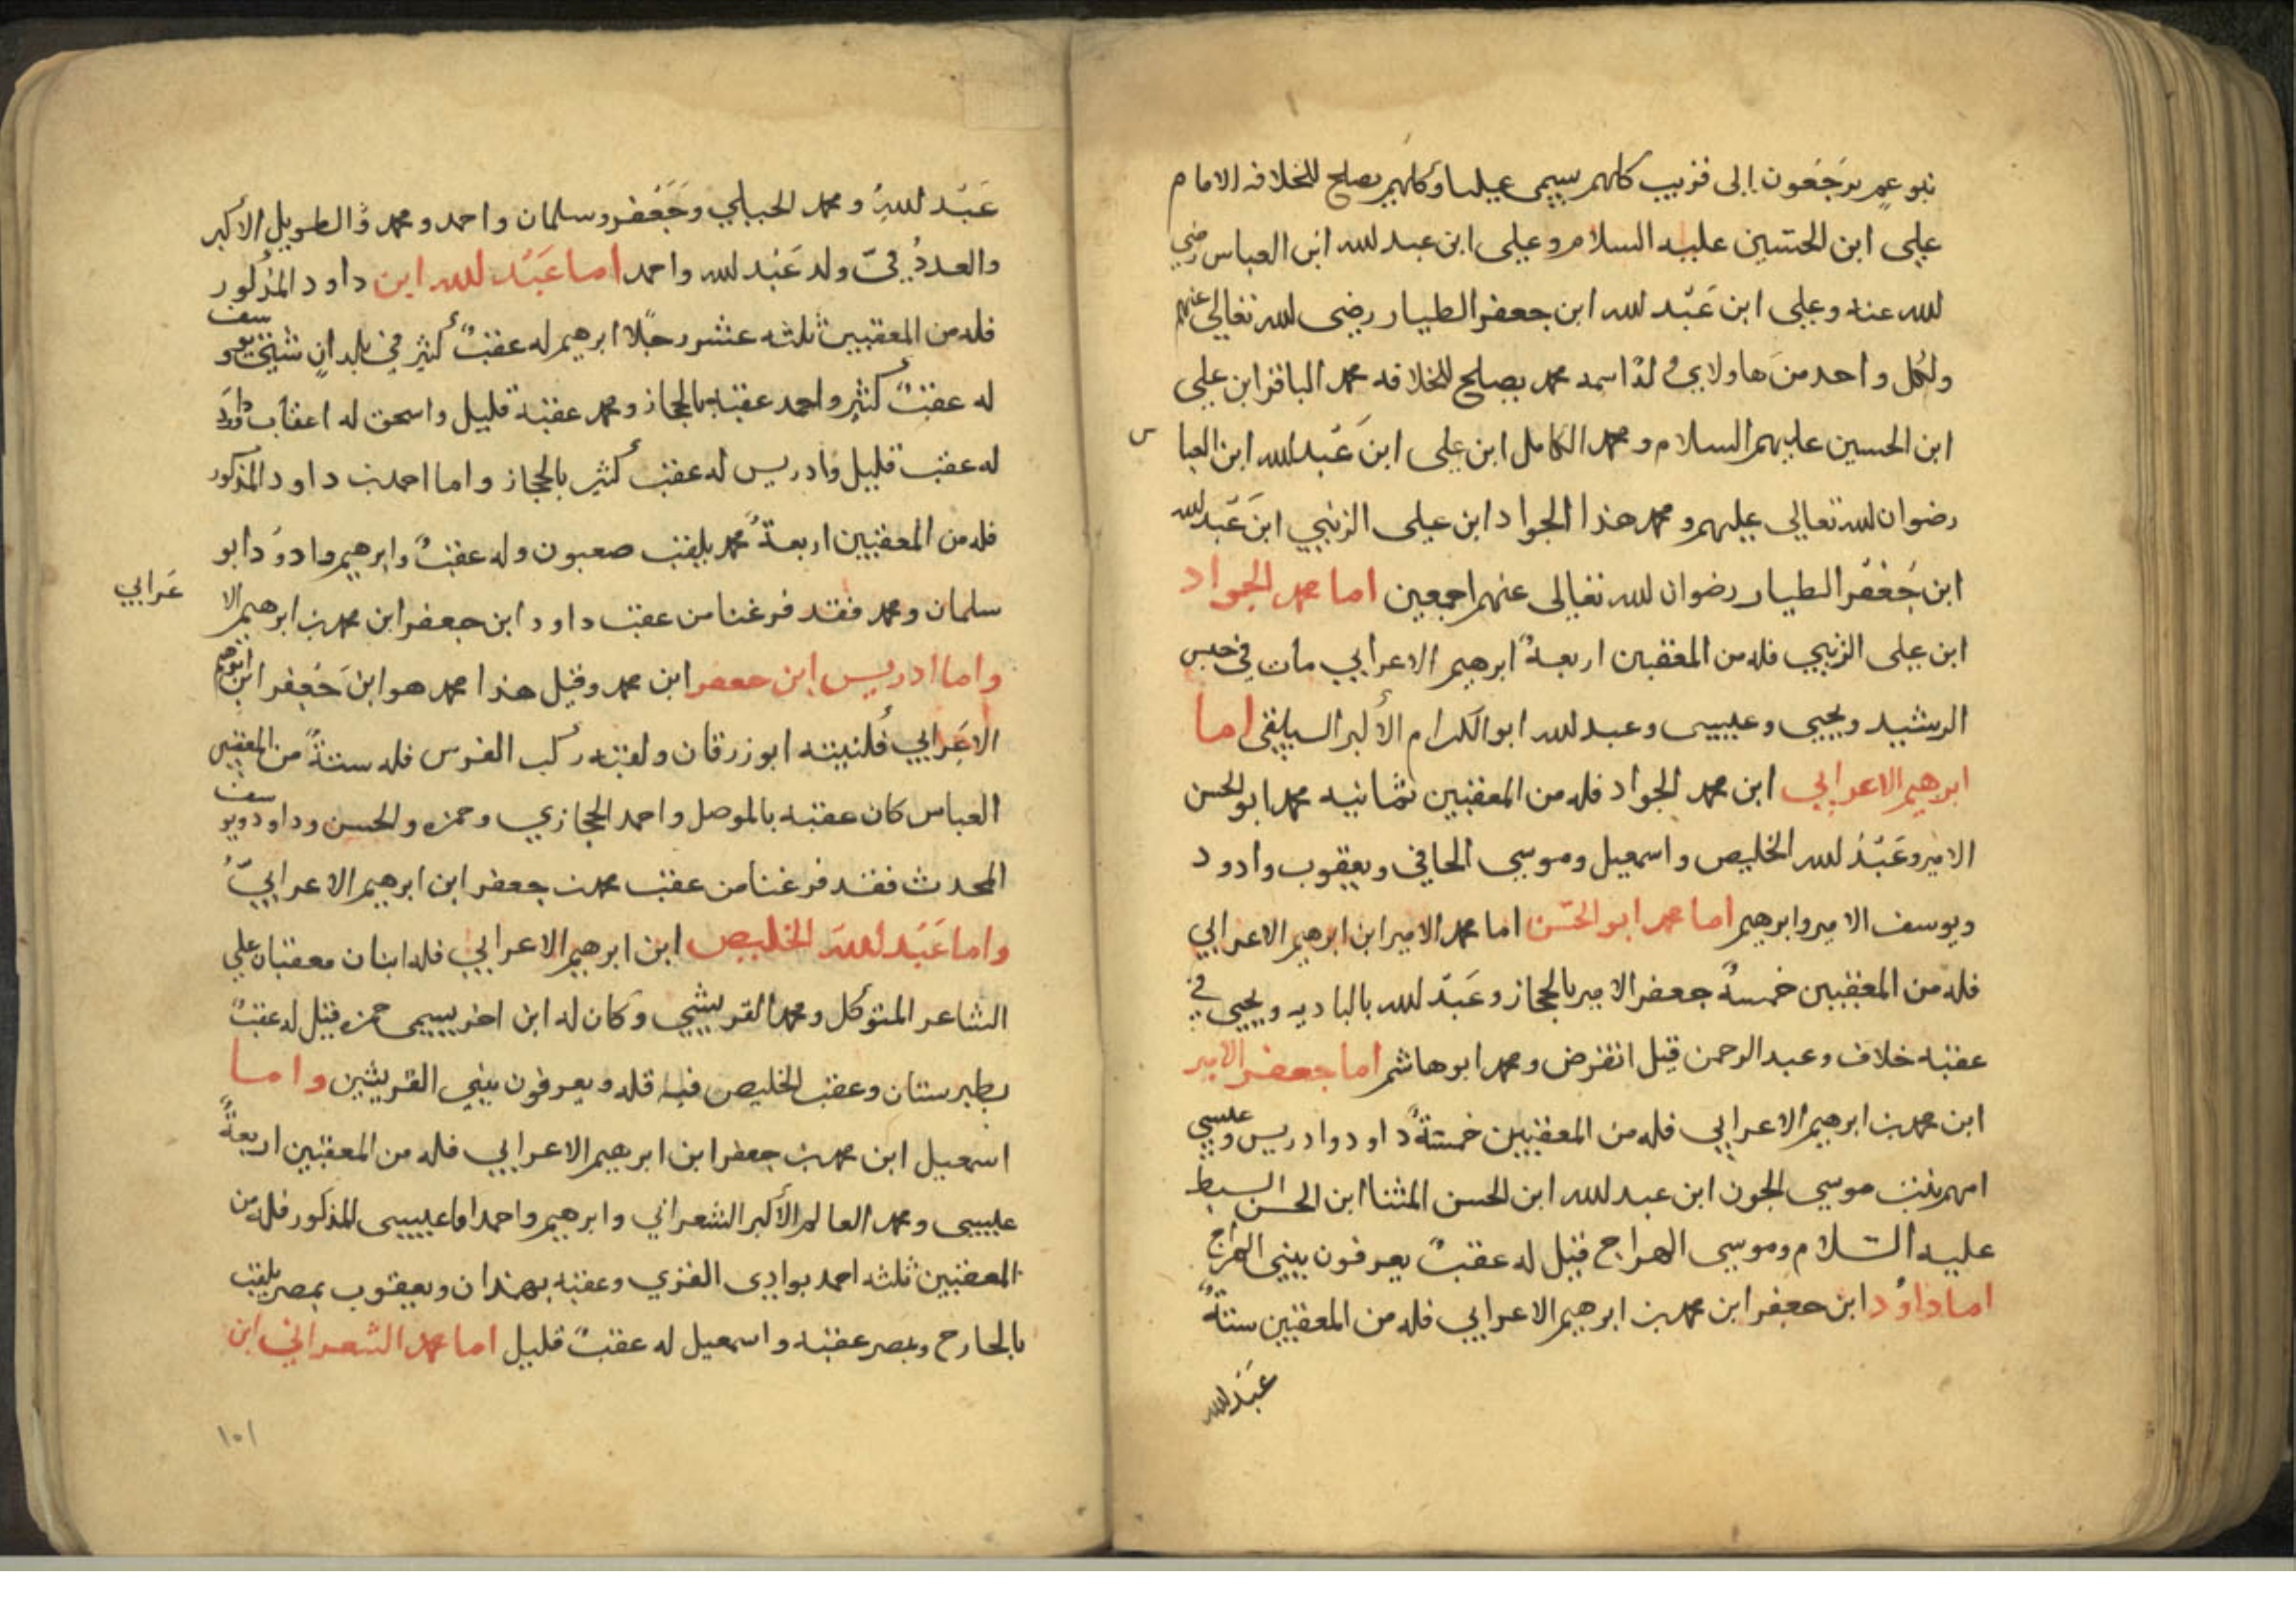 بنو عم يرجعون الى قريب كلهم يسمى عليا وكلهم يصلح للخلافه الامام
علي ابن الحسين عليه السلام وعلى ابن عبد الله ابن العباس رضي
الله عنه وعلى ابن عَبْد الله ابن جعفر الطيار رضى الله تعالى عنهم
ولكل واحد من هاولاي اسمه محمد يصلح للخلافه محمد الباقر ابن علي
ابن الحسين عليهم السلام ومحمد الكامل ابن علي ابن عَبْد الله ابن العباس
رضوان الله تعالى عليهم ومحمد هذا الجواد ابن علي الزينبي ابن عَبْد الله
ابن جَعْفر الطيار رضوان الله تعالى عنهم اجمعين اما محمد الجواد
ابن على الزينبي فله من المعقبين اربعة ابرهيم الاعرابي مات في حبس
الرشيد ويحيى وعيسى وعبد الله ابو الكرام الأكبر اما
ابرهيم الاعرابي ابن محمد الجواد فله من المعقبين ثمانيه محمد ابو الحسن
الامير وعَبْدُ الله الخليص واسمعيل وموسى الحافي ويعقوب وادود
ويوسف الامير وابرهيم اما محمد ابو الحسن اما محمد الامير ابن ابرهيم الاعرابي
فله من المعقبين خمسة جعفر الامير بالحجاز وعَبْد الله بالباديه ويحيى في
عقبه خلاف وعبد الرحمن قيل انقرض ومحمد ابو هاشم اما جعفر الامير
ابن محمد بن ابرهيم الاعرابي فله من المعقبين خمسة داود وادريس وعيسى
امهم بنت موسي الجون ابن عبد الله ابن الحسن المثنا ابن الحسن السبط
عليه السلام وموسى الهراج قيل له عقبٌ يعرفون ببني الهراج
اما داوُد ابن جعفر ابن محمد بن ابرهيم الاعرابي فله من المعقبين ستةٌ
عَبْد الله
عَبْد الله ومحمد وجَعْفر وسلمان واحمد ومحمد والطويل الأكبر
والعددُ في ولد عَبْد الله واحمد اما عَبْد الله ابن داود المذكور
فله من المعقبين ثلثه عشر رجلا ابرهيم له عقبٌ كثير في بلدان شتى ويوسف
له عقبٌ كثير واحمد عقبه بالحجاز ومحمد عقبه قليل واسحق له اعقاب وداود
له عقب قليل وادريس له عقب كثير بالحجاز واما احمد بن داود المذكور
فله من المعقبين اربعة محمد يلقب صعبون وله عقبٌ وابرهيم وادوُد ابو
سلمان ومحمد فقد فرغنا من عقب داود ابن جعفر ابن محمد بن ابرهيم الا
عَرابي
واما ادريس ابن جعفر ابن محمد وقيل هذا محمد هو ابن جَعْفر ابن ابرهيم
الاعَرابي فكنيته ابو زرقان ولقبه ركب الفرس فله ستةٌ من المعقبين
العباس كان عقبه بالموصل واحمد الحجازي وحمزه والحسن وداود ويوسف
المحدث فقد فرغنا من عقب محمد بن جعفر ابن ابرهيم الاعرابيّ
واما عَبْد الله الخليص ابن ابرهيم الاعرابي فله ابنان معقبان علي
الشاعر المتوكل ومحمد القريشي وكان له ابن اخر يسمى حمزه قيل له عقبٌ
بطبرستان وعقب الخليص فيه قله ويعرفون ببني القريشين واما
اسمعيل ابن محمد بن جعفر ابن ابرهيم الاعرابي فله من المعقبين اربعةٌ
عيسى ومحمد العالم الأكبر الشعراني وابرهيم واحمد اما عيسى المذكور فله من
المعقبين ثلثه احمد بوادى وعقبه بهمدان ويعقوب بمصر يلقب
وبمصر عقبه واسمعيل له عقبٌ قليل اما محمد الشعراني ابن
١٠١